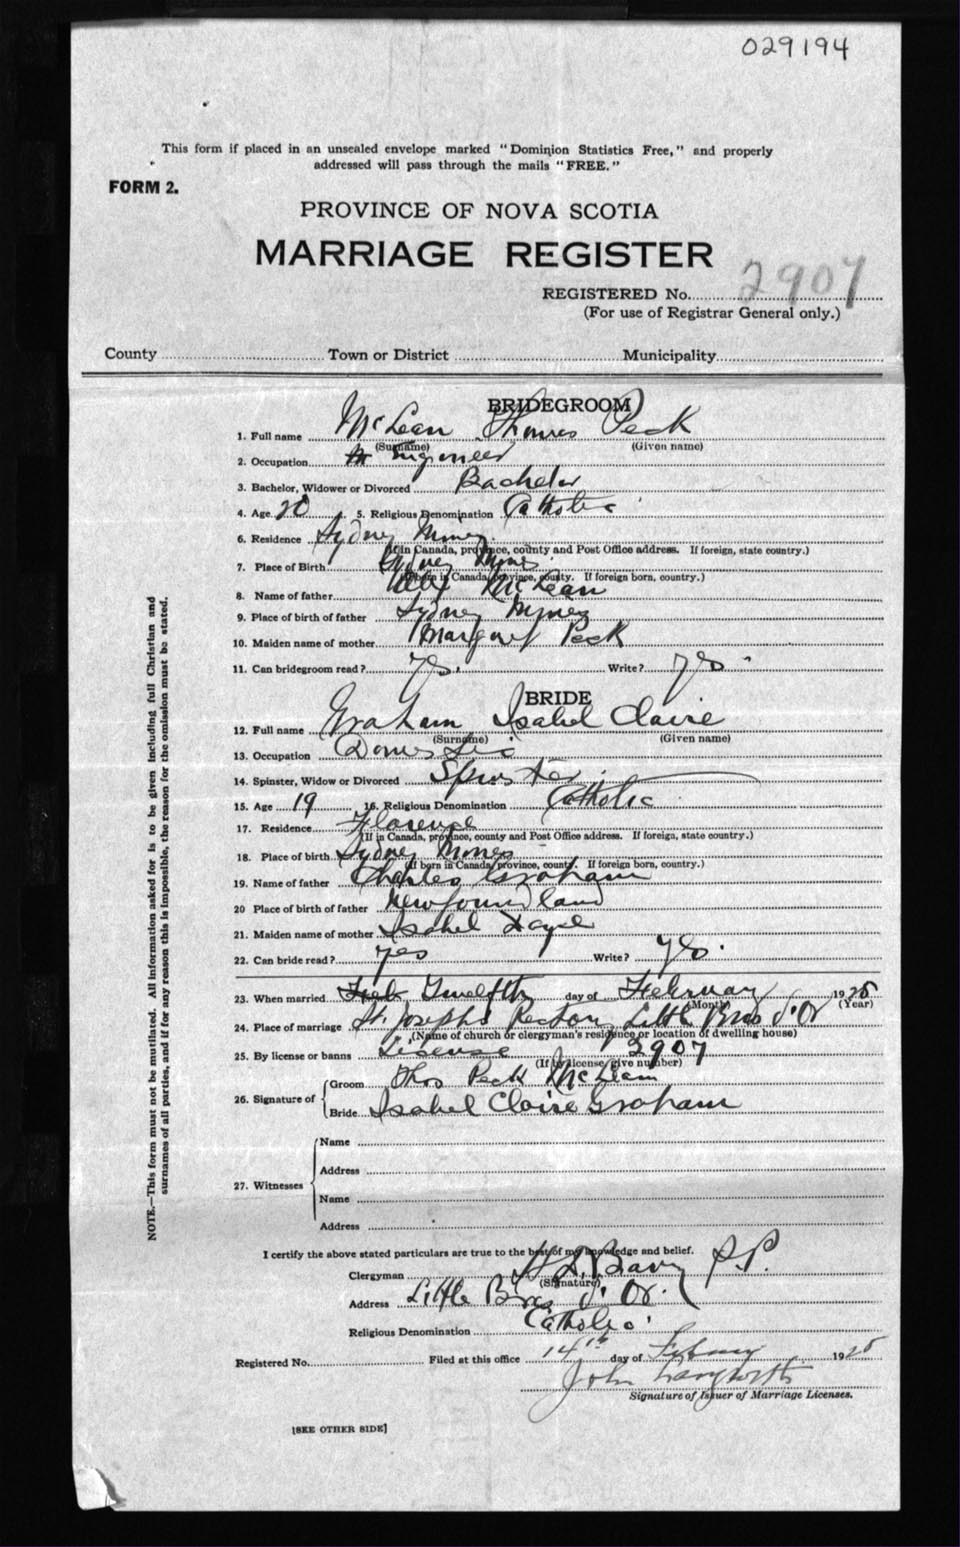 029194
This form if placed in an unsealed envelope marked "Dominion Statistics Free," and properly
addressed will pass through the mails "FREE."
FORM 2.
PROVINCE OF NOVA SCOTIA
MARRIAGE REGISTER
REGISTERED No. 2907
(For use of Registrar General only.)
County Town or District Municipality
BRIDEGROOM
1. Full name McLean Thomas Peck
(Surname) (Given name)
2. Occupation Engineer
3. Bachelor, Widower or Divorced Bachelor
4. Age 20 5. Religious Denomination Catholic
6. Residence Sydney Mines
(If in Canada, province, county and Post Office address. If foreign, state country.)
7. Place of Birth Sydney Mines
(If born in Canada, province, county. If foreign born, country.)
8. Name of father McLean
9. Place of birth of father Sydney Mines
10. Maiden name of mother Margaret Peck
11. Can bridegroom read? yes. Write? yes
BRIDE
12. Full name Graham Isabel Claire
(Surname) (Given name)
13. Occupation Domestic
14. Spinster, Widow or Divorced Spinster
15. Age 19 16. Religious Denomination Catholic
17. Residence Florence
(If in Canada, province, county and Post Office address. If foreign, state country.)
18. Place of birth Sydney Mines
(If born in Canada, province, county. If foreign born, country.)
19. Name of father Charles Graham
20 Place of birth of father Newfoundland
21. Maiden name of mother Isabel
22. Can bride read? yes Write? yes.
23. When married Twelfth day of February 1925
(Month) (Year)
24. Place of marriage St. Josephs Rectory, Little Bras d'Or
(Name of church or clergyman's residence or location of dwelling house)
25. By license or banns License 2907
(If by license give number)
26. Signature of
Groom Thos Peck McLean
Bride Isabel Claire Graham
27. Witnesses
Name
Address
Name
Address
I certify the above stated particulars are true to the best of my knowledge and belief.
Clergyman Barry P.P.
(Signature)
Address Little Bras d'Or.
Religious Denomination Catholic
Registered No. Filed at this office 14th day of February 1925
John Langworth
Signature of Issuer of Marriage Licenses.
[SEE OTHER SIDE]
NOTE.—This form must not be mutilated. All information asked for is to be given including full Christian and
surnames of all parties, and if for any reason this is impossible, the reason for the omission must be stated.